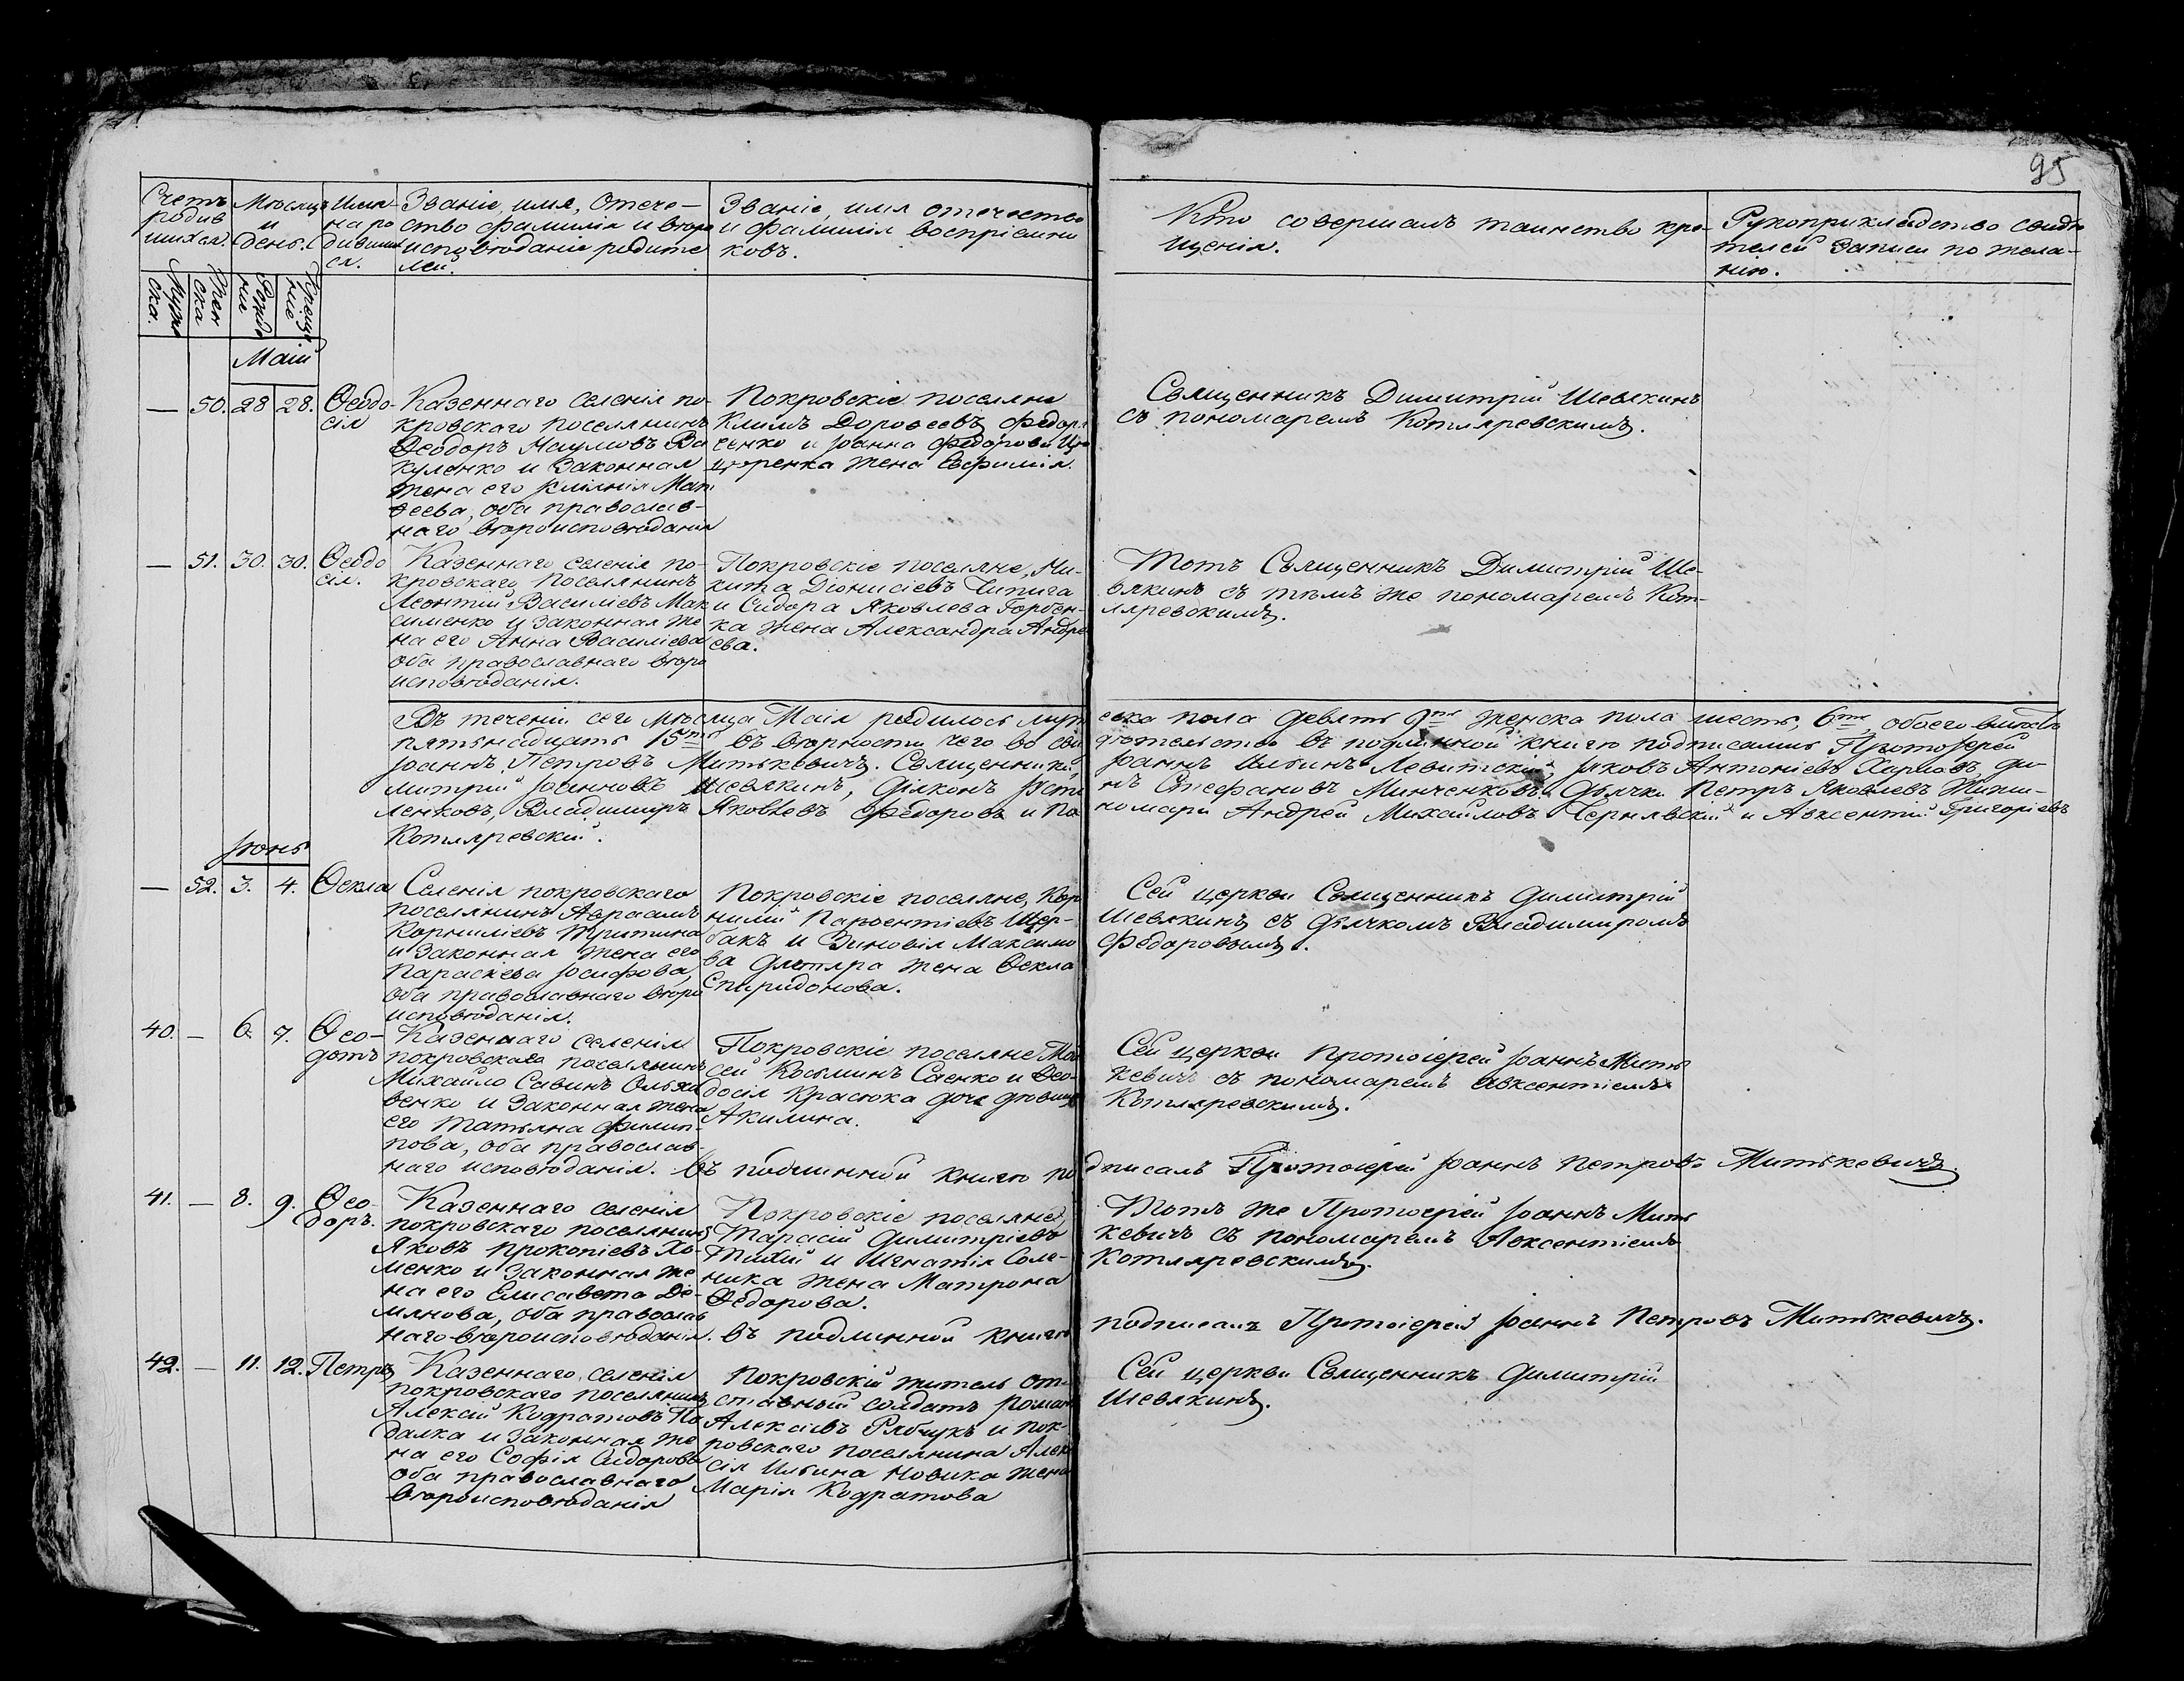 95
Счетъ
родив
шихся.
Мѣсяцъ
и
день.
Имя
на ро
дивших
ся.
Званіе, имя, отече-
ство фамилія и вѣро
исповѣданіе родите
лей.
Званіе, имя отечество
и фамилія воспріемни
ковъ.
Кто совершалъ таинство кре-
щенія.
Рукоприкладство свидѣ
телей записи по жела-
нію.
Муже
ска.
Жен
ска
Рожде
ніе
Креще
ніе
Маій
— 50. 28 28. Ѳеодо-
сія
Казеннаго селенія по-
кровскаго поселянинъ
Ѳеодоръ Наумовъ Ва
куленко и законная
жена его Іуліанія Мат
ѳеева, оба православ-
наго вѣроисповѣданія
Покровскіе поселяне
Климъ Дороѳеевъ Федор
ченко и Іоанна Федорова
жена Евфимія.
Священникъ Димитрій Шевякинъ
съ пономаремъ Котляревскимъ.
— 51. 30. 30. Ѳеодо
сія.
Казеннаго селенія по-
кровскаго поселянинъ
Леонтій Василіевъ Мак
сименко и законная же
на его Анна Василіева
оба православнаго вѣро
исповѣданія.
Покровскіе поселяне, Ни-
кита Діонисіевъ Чипига
и Сидора Яковлева Горбен-
ка жена Александра Андре
ева.
Тотъ Священникъ Димитрій Ше-
вякинъ съ тѣмъ же пономаремъ Кот-
ляревскимъ.
Въ теченіи сего мѣсяца Маія родилось муж еска пола девять 9ть женска пола шесть, 6ть обоего
пятьнадцать 15ть въ вѣрности чего во сви дѣтельство въ подлинной книгѣ подписались Протоіерей
Іоаннъ Петровъ Митькевичъ. Священники, Іоаннъ Ильинъ Левитскій, Іаковъ Антоніевъ Харловъ, Ди-
митрій Іоанновъ Шевякинъ, Діаконъ Стефановъ Минченковъ. Дьячки Петръ Яковлевъ
ленковъ, Владимиръ Яковлевъ Федоровъ и По номари Андрей Михайловъ Чернявскій и Авксентій Григоріевъ
Котляревскій.
Іюнь
— 52. 3. 4. Ѳекла
Селенія покровскаго
поселянинъ Авраамъ
Корниліевъ Тритина
и законная жена его
Параскева Іосифова,
оба православнаго вѣро
исповѣданія.
Покровскіе поселяне, Кор
нилій Парѳентіевъ Щер-
бакъ и Зиновія Максимо
ва Дегтяра жена Ѳекла
Спиридонова.
Сей церкви Священникъ Димитрій
Шевякинъ съ дьячкомъ Владимиромъ
Федоровымъ.
40. — 6. 7. Ѳео-
дотъ
Казеннаго селенія
покровскаго поселянинъ
Михайло Савинъ Ольхо
венко и законная жена
его Татьяна Филип-
пова, оба православ-
наго исповѣданія.
Покровскіе поселяне Мой
сей Косьминъ Саенко и Ѳео-
досія Красюка дочь дѣвица
Акилина.
Сей церкви Протоіерей Іоаннъ Мить
кевичъ съ пономаремъ Авксентіемъ
Котляревскимъ.
въ подлинной книгѣ подписалъ Протоіерей Іоаннъ Петровъ Митькевичъ.
41. — 8. 9. Ѳео-
доръ.
Казеннаго селенія
покровскаго поселянинъ
Яковъ Прокопіевъ Хо-
менко и законная же
на его Елисавета Де-
миянова, оба православ
наго вѣроисповѣданія.
Покровскіе поселяне,
Тарасій Димитріевъ
Тихій и Игнатія Соле-
ника жена Матрона
Ѳедорова.
Тотъ же Протоіерей Іоаннъ Мить
кевичъ съ пономаремъ Авксентіемъ
Котляревскимъ.
въ подлинной книгѣ подписалъ Протоіерей Іоаннъ Петровъ Митькевичъ.
42. — 11. 12. Петръ
Казеннаго селенія
покровскаго поселянинъ
Алексій Кодратовъ По
далка и законная же
на его Софія Сидорова
оба православнаго
вѣроисповѣданія
Покровскій житель от
ставный солдатъ Романъ
Алексіевъ Рябчукъ и пок-
ровскаго поселянина Алек
сія Ильина Новика жена
Марія Кодратова
Сей церкви Священникъ Димитрій
Шевякинъ.